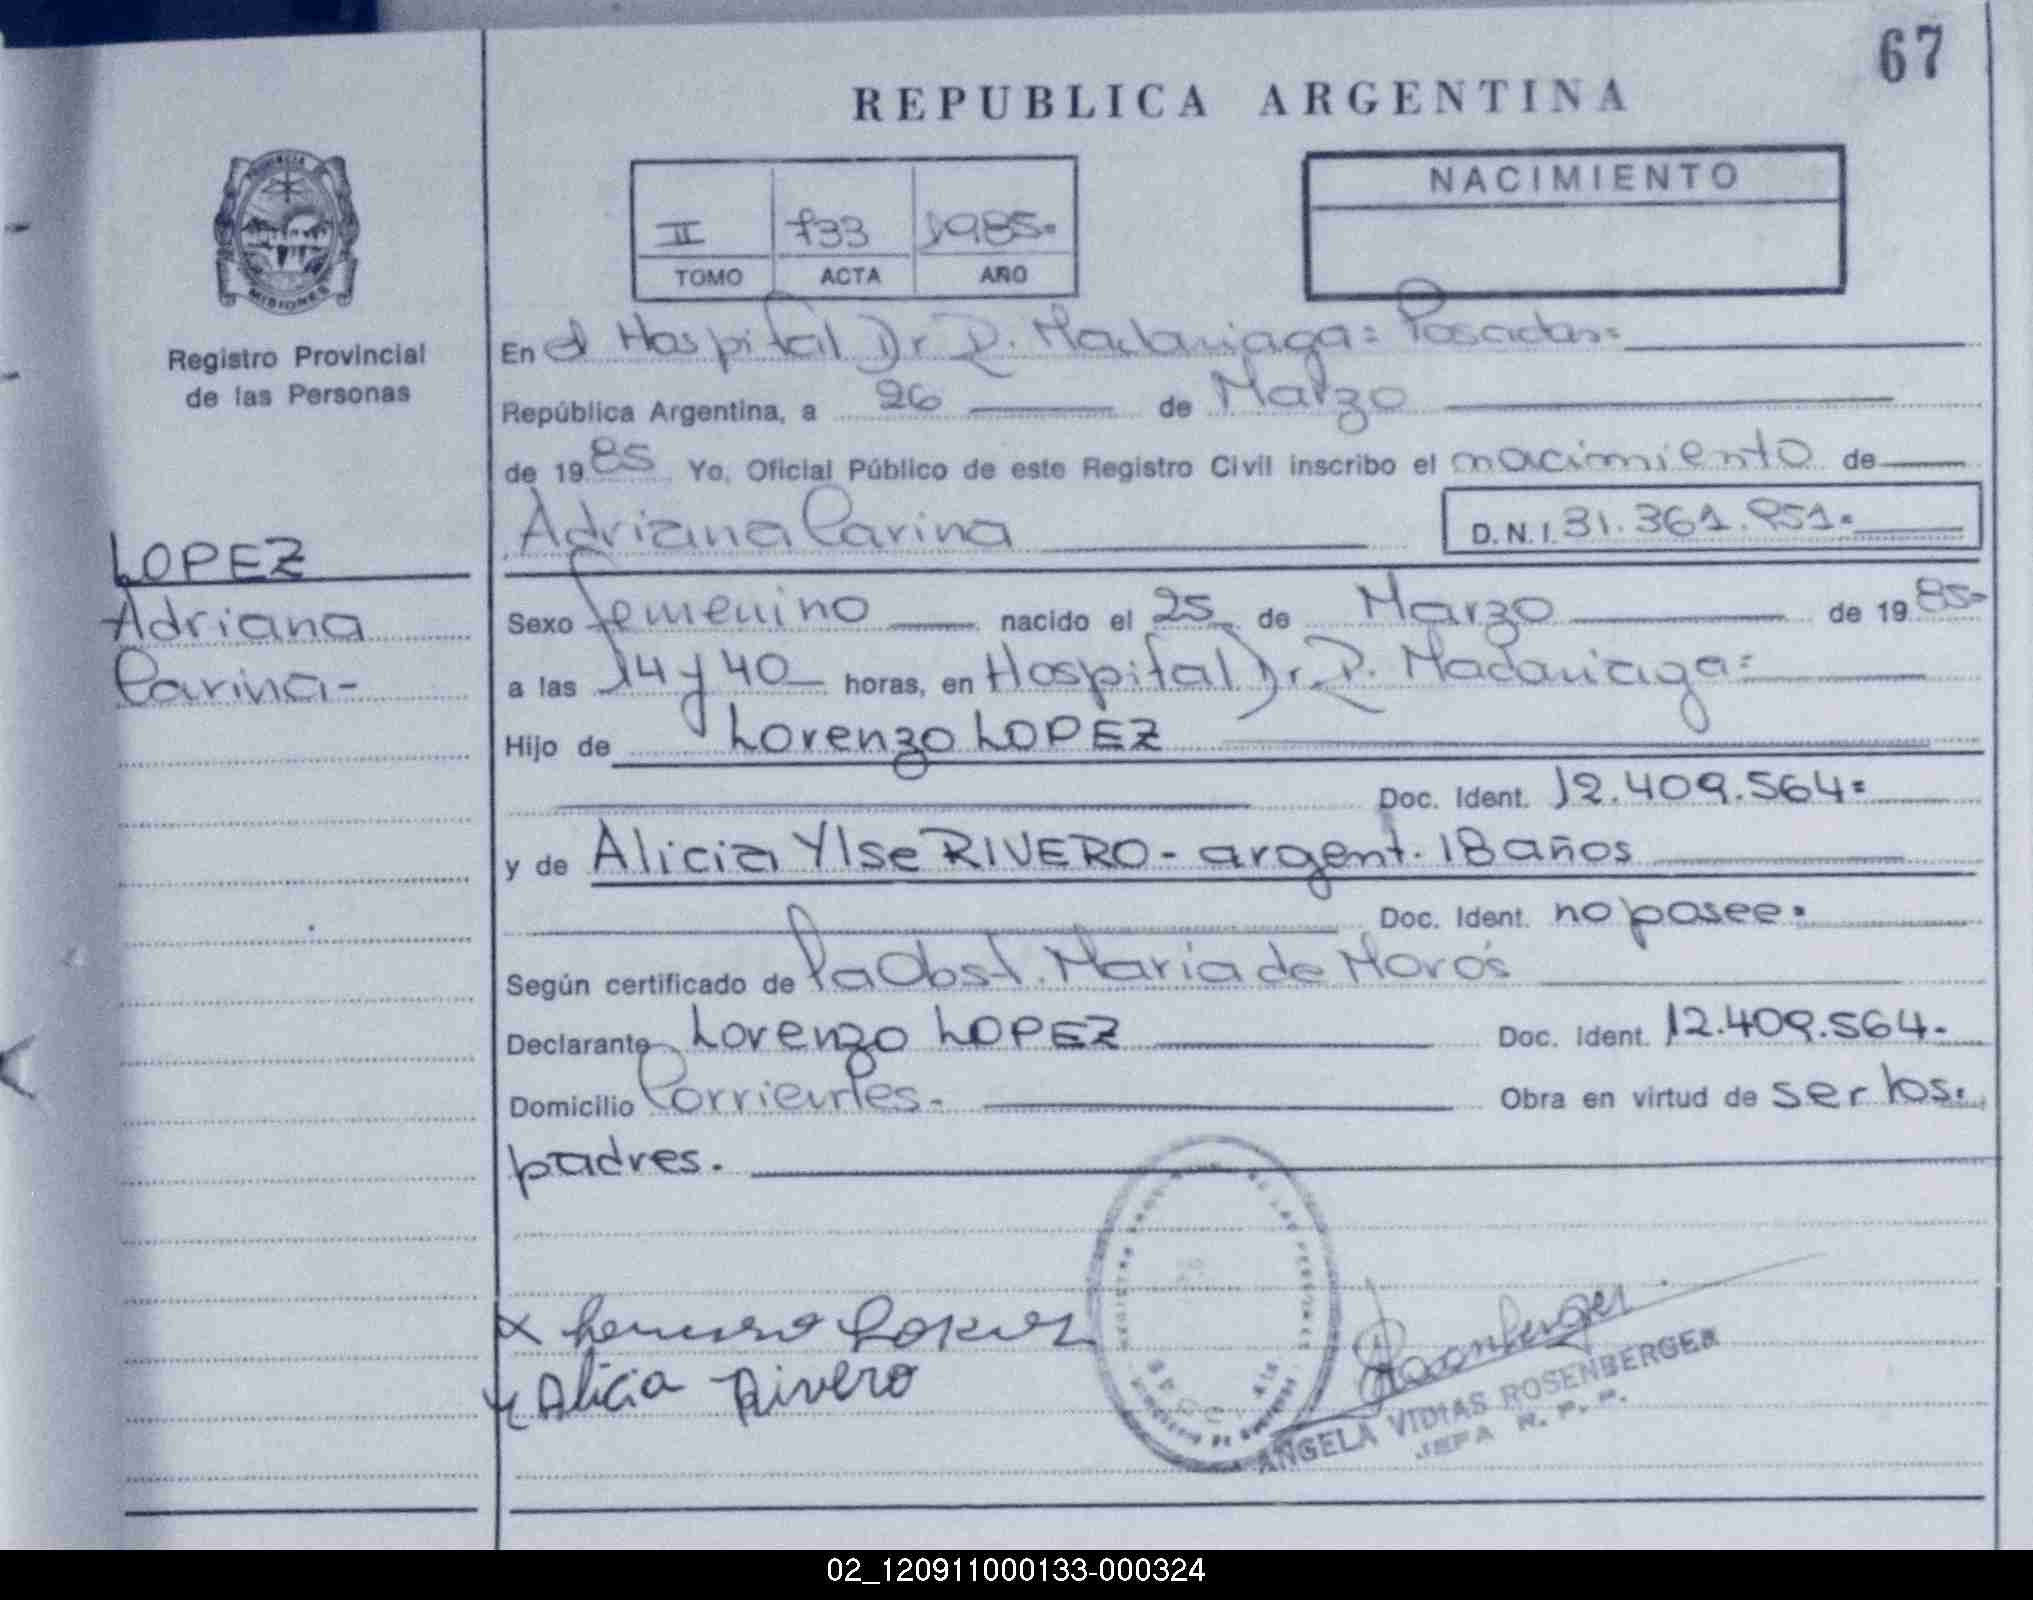 67
REPUBLICA ARGENTINA
II 733 1985.
TOMO ACTA AÑO
NACIMIENTO
PROVINCIA
MISIONES
Registro Provincial
de las Personas
LOPEZ
Adriana
Carina-
En el Hospital Dr R. Madariaga= Posadas=
República Argentina, a 26 de Marzo
de 1985 Yo, Oficial Público de este Registro Civil inscribo el nacimiento de
Adriana Carina D.N.I. 31.361.951.
Sexo femenino nacido el 25 de Marzo de 1985=
a las 14 y 40 horas, en Hospital Dr. R. Madariaga=
Hijo de Lorenzo LOPEZ
Doc. Ident. 12.409.564=
y de Alicia Ylse RIVERO - argent. 18 años
Doc. Ident. no posee.
Según certificado de la Obst. María de Morós
Declarante Lorenzo LOPEZ Doc. Ident. 12.409.564.
Domicilio Corrientes. Obra en virtud de ser los.
padres.
x Lorenzo Lopez
x Alicia Rivero
Rosenberger
ANGELA VIDIAS ROSENBERGER
JEFA R. P. P.
02_120911000133-000324